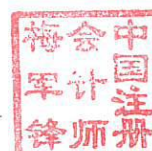 中国注册
会计师
梅军锋